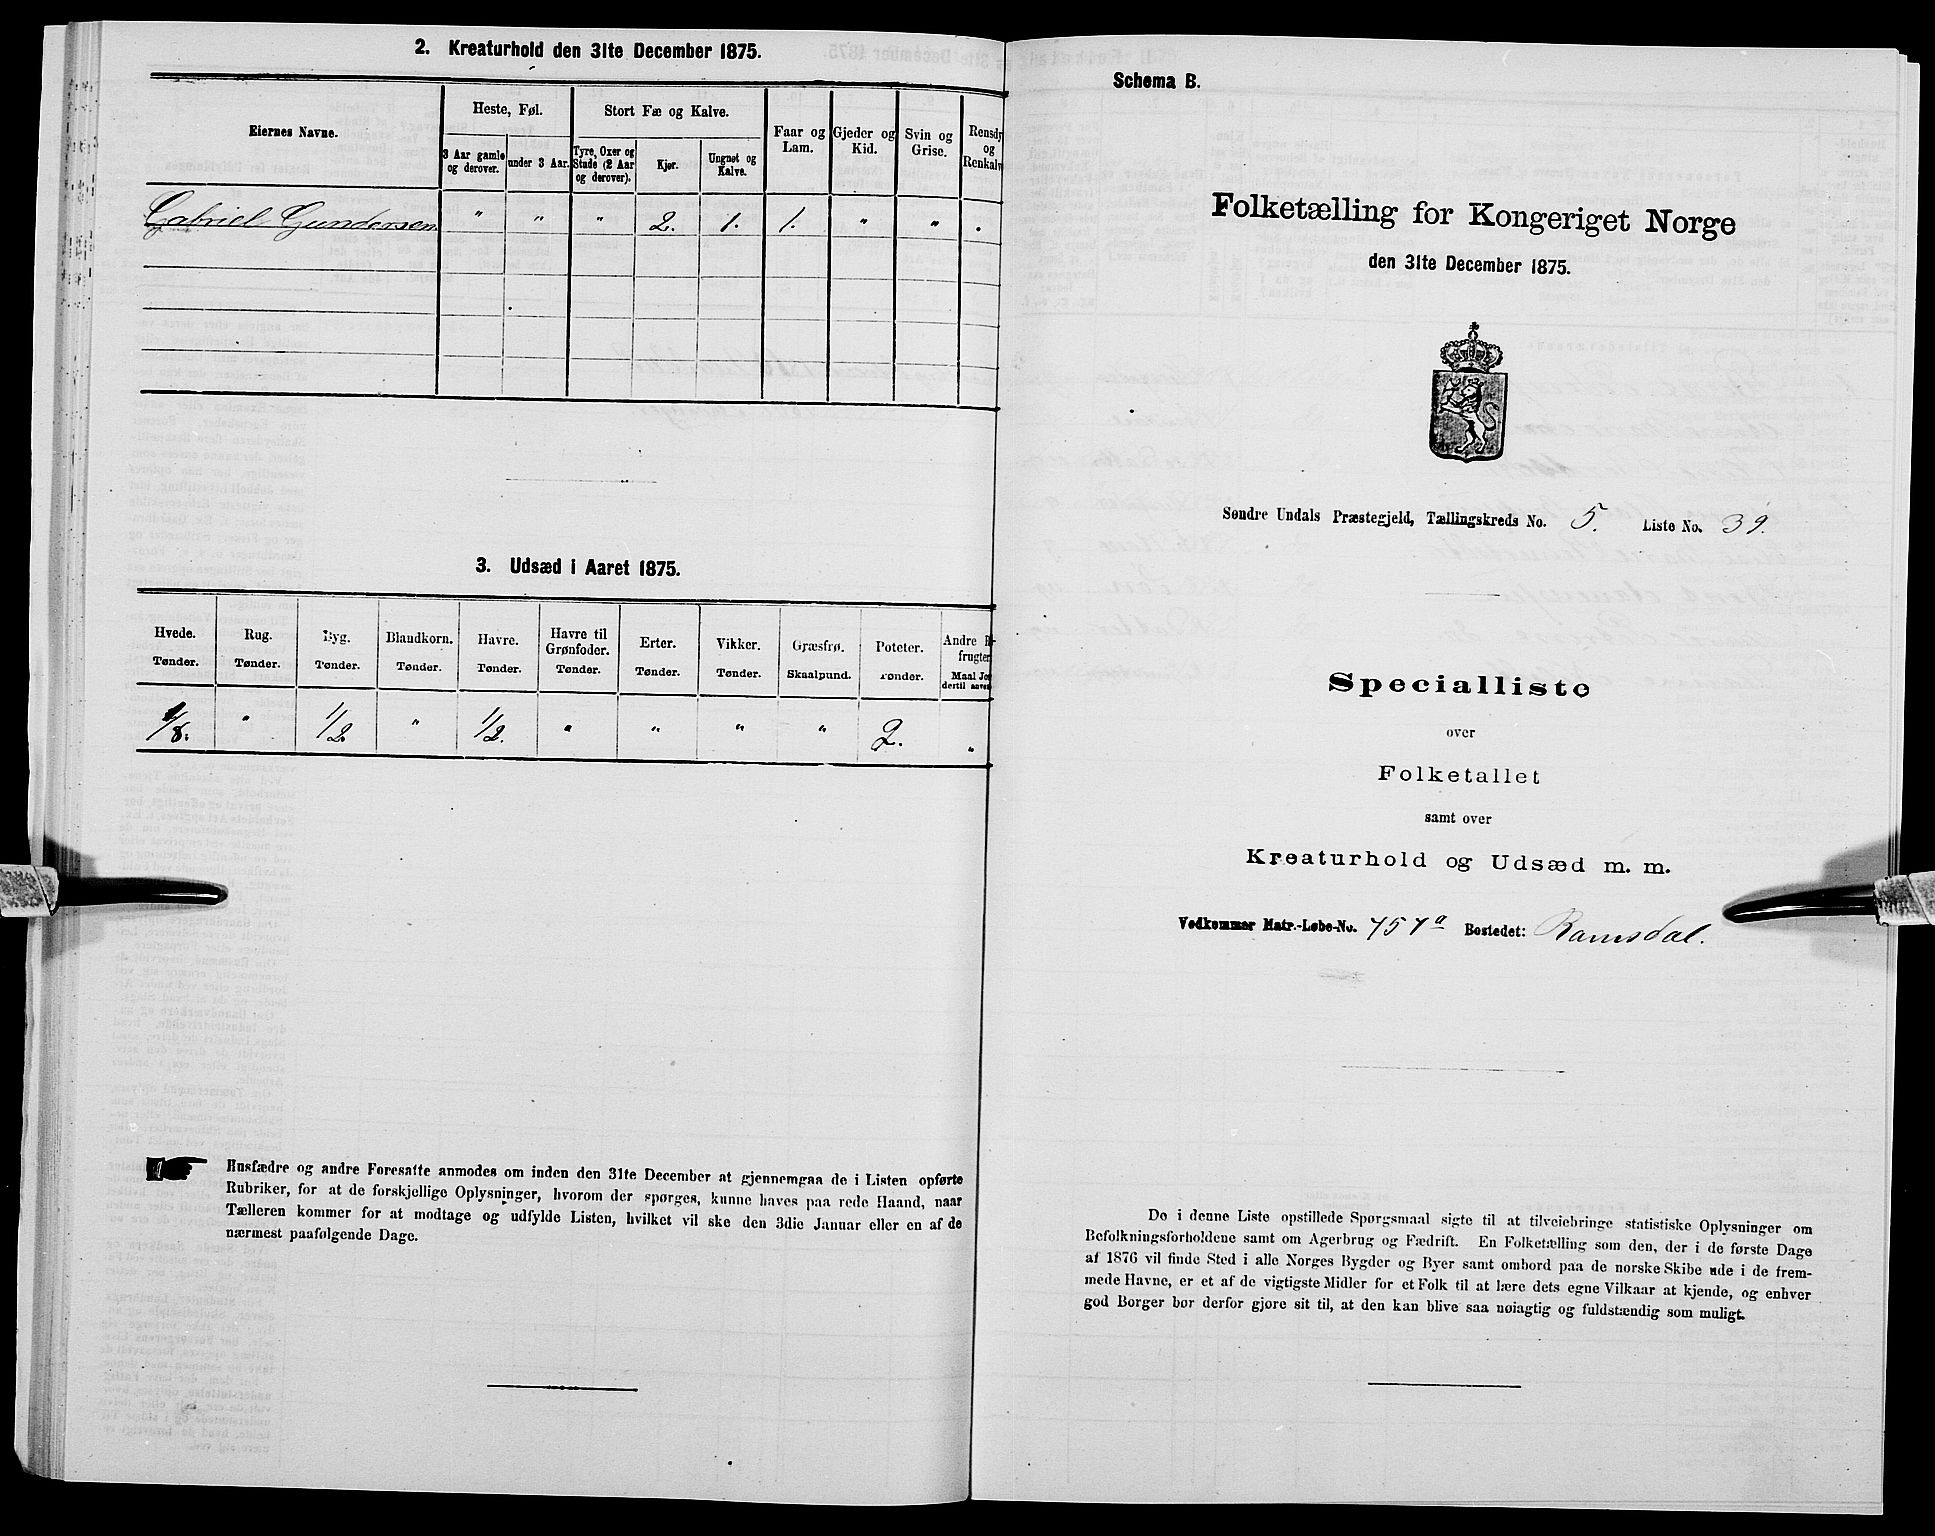 2. Kreaturhold den 31te December 1875.
Eiernes Navne.
Heste, Føl.
3 Aar gamle og derover.
under 3 Aar.
Stort Fæ og Kalve.
Tyre, Oxer og Stude (2 Aar og derover).
Kjør.
Ungnøt og Kalve.
Faar og Lam.
Gjeder og Kid.
Svin og Grise.
Rensdy og Renkalv
Gabriel Gundersen " " " 2. 1. 1. " " "
3. Udsæd i Aaret 1875.
Hvede. Rug. Byg. Blandkorn. Havre. Havre til Grønfoder. Erter. Vikker. Græsfrø. Poteter. Andre R- frugter
Tønder. Tønder. Tønder. Tønder. Tønder. Tønder. Tønder. Tønder. Skaalpund. Tønder. Maal Jor dertil anven
1/8. " 1/2 " 1/2. " " " " 2. "
Husfædre og andre Foresatte anmodes om inden den 31te December at gjennemgaa de i Listen opførte
Rubriker, for at de forskjellige Oplysninger, hvorom der spørges, kunne haves paa rede Haand, naar
Tælleren kommer for at modtage og udfylde Listen, hvilket vil ske den 3die Januar eller en af de
nærmest paafølgende Dage.
Schema B.
Folketælling for Kongeriget Norge
den 31te December 1875.
Søndre Undals Præstegjeld, Tællingskreds No. 5. Liste No. 39.
Specialliste
over
Folketallet
samt over
Kreaturhold og Udsæd m. m.
Vedkommer Matr.-Løbe-No. 757a Bostedet: Ramsdal.
De i denne Liste opstillede Spørgsmaal sigte til at tilveiebringe statistiske Oplysninger om
Befolkningsforholdene samt om Agerbrug og Fædrift. En Folketælling som den, der i de første Dage
af 1876 vil finde Sted i alle Norges Bygder og Byer samt ombord paa de norske Skibe ude i de frem-
mede Havne, er et af de vigtigste Midler for et Folk til at lære dets egne Vilkaar at kjende, og enhver
god Borger bør derfor gjøre sit til, at den kan blive saa nøiagtig og fuldstændig som muligt.